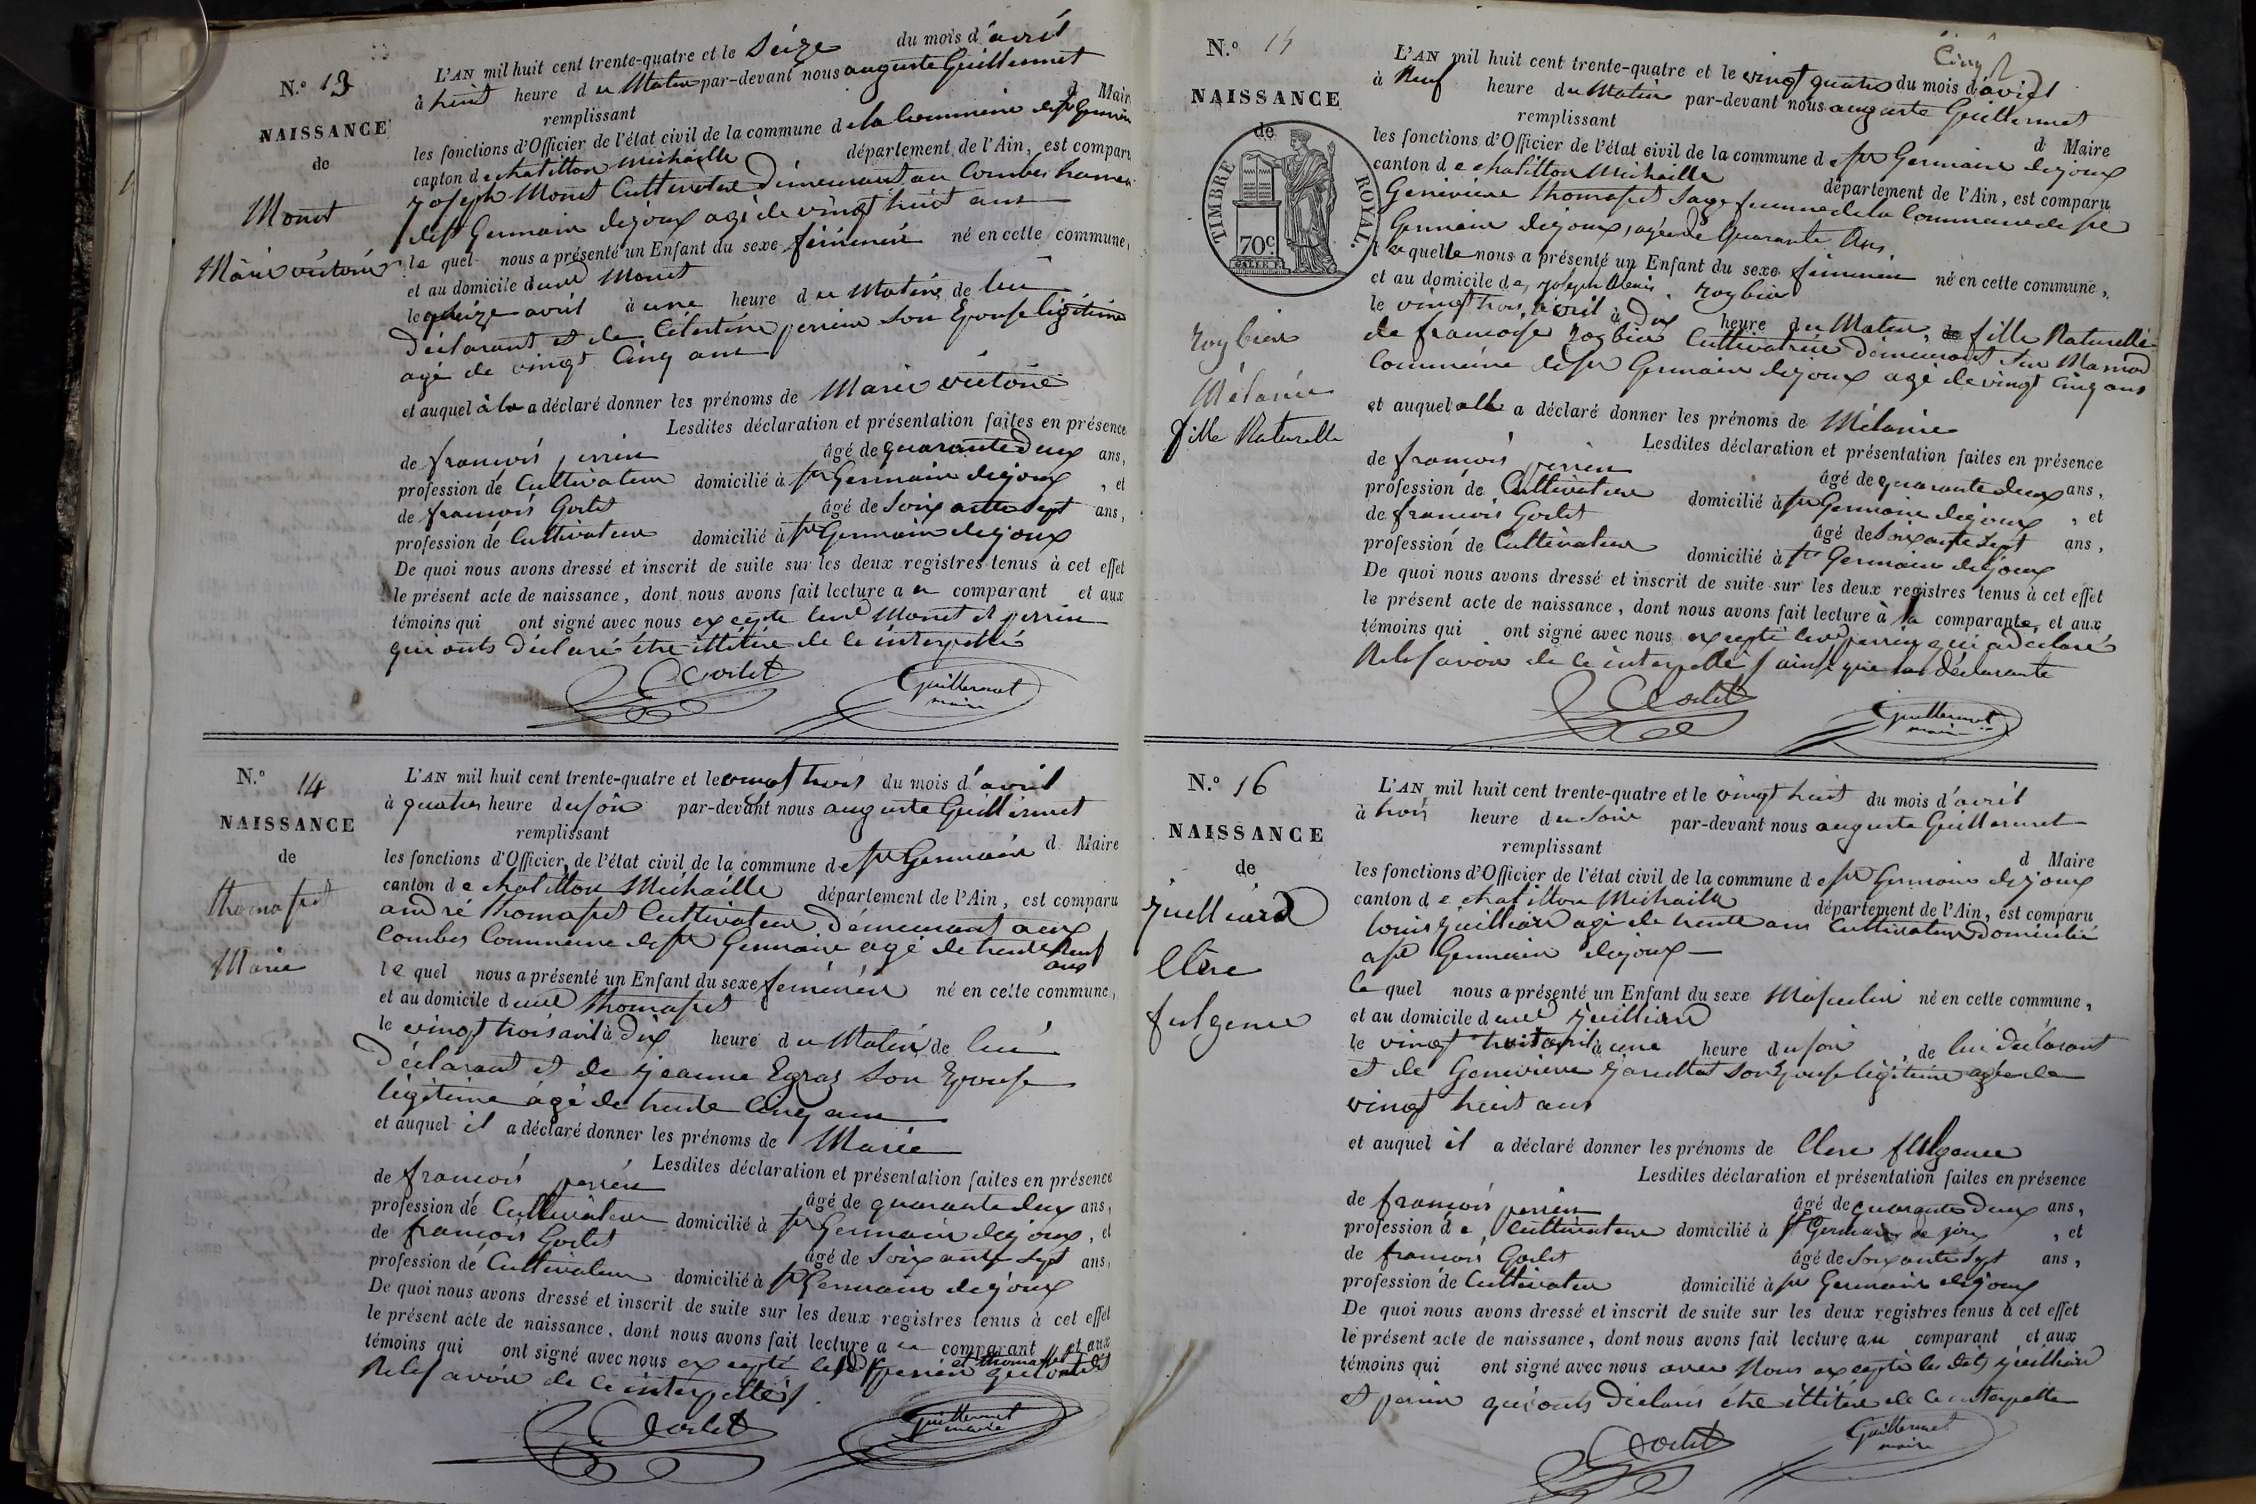 N.º 13
NAISSANCE
de
Monet
Marie victoire
L'AN mil huit cent trente-quatre et le Seize du mois d'avril
à huit heure du Matin par-devant nous auguste Guillermet
remplissant d Maire
les fonctions d'Officier de l'état civil de la commune de la Commune de st Germain
canton de chatillon Michaille département de l'Ain, est comparu
joseph Monet Cultivateur Demeurant au Combes hameau
de st Germain dejoux agé de vingt huit ans
le quel nous a présenté un Enfant du sexe féminin né en cette commune,
et au domicile dud Monet
le seize avril à une heure du Matin, de lui
Déclarant et de Célestine perrin Son Epouse légitime
agé de vingt Cinq ans
et auquel a déclaré donner les prénoms de Marie victoire
Lesdites déclaration et présentation faites en présence
de francois perrin âgé de quarante Deux ans,
profession de Cultivateur domicilié à st Germain dejoux, et
de francois Godet âgé de Soixante sept ans,
profession de Cultivateur domicilié à st Germain dejoux
De quoi nous avons dressé et inscrit de suite sur les deux registres tenus à cet effet
le présent acte de naissance, dont nous avons fait lecture au comparant et aux
témoins qui ont signé avec nous excepté Monet et perrin
qui onts Déclaré étre illitére de ce interpellé
Godet Guillermet
maire
N.º 14
NAISSANCE
de
thomasset
Marie
L'AN mil huit cent trente-quatre et le vingt trois du mois d'avril
à quatre heure du soir par-devant nous auguste Guillermet
remplissant d Maire
les fonctions d'Officier de l'état civil de la commune de st Germain
canton de chatillon Michaille département de l'Ain, est comparu
andré thomasset Cultivateur Demeurant aux
Combes Commune de st Germain agé de trente Neuf
ans
le quel nous a présenté un Enfant du sexe féminin né en cette commune,
et au domicile dud thomasset
le vingt trois avril à Dix heure du Matin, de lui
Déclarant et de jeanne Egraz Son Epouse
légitime agé de trente Cinq ans
et auquel il a déclaré donner les prénoms de Marie
Lesdites déclaration et présentation faites en présence
de francois perrin âgé de quarante deux ans,
profession de Cultivateur domicilié à st Germain dejoux, et
de francois Godet âgé de Soixante sept ans,
profession de Cultivateur domicilié à st Germain dejoux
De quoi nous avons dressé et inscrit de suite sur les deux registres tenus à cet effet
le présent acte de naissance, dont nous avons fait lecture au comparant et aux
témoins qui ont signé avec nous excepté perrin et thomasset qui ont dit
Ne le savoir de ce interpellés
Godet Guillermet
maire
Cinq
N.º 15
NAISSANCE
de
TIMBRE ROYAL.
70c
roybier
Mélanie
fille Naturelle
L'AN mil huit cent trente-quatre et le vingt quatre du mois d'avril
à Neuf heure du Matin par-devant nous auguste Guillermet
remplissant d Maire
les fonctions d'Officier de l'état civil de la commune de st Germain dejoux
canton de chatillon Michaille département de l'Ain, est comparu
Geneviève thomasset Sage femme de la Commune de st
Germain dejoux, agée de Quarante Ans
laquelle nous a présenté un Enfant du sexe féminin né en cette commune,
et au domicile de joseph roybier
le vingt trois avril à Dix heure du Matin, fille Naturelle
de francoise roybier Cultivatrice demeurant Sur Marnod
Commune de st Germain dejoux agé de vingt Cinq ans
et auquel elle a déclaré donner les prénoms de Mélanie
Lesdites déclaration et présentation faites en présence
de francois perrin âgé de quarante deux ans,
profession de Cultivateur domicilié à st Germain dejoux, et
de francois Godet âgé de Soixante sept ans,
profession de Cultivateur domicilié à st Germain dejoux
De quoi nous avons dressé et inscrit de suite sur les deux registres tenus à cet effet
le présent acte de naissance, dont nous avons fait lecture à la comparante, et aux
témoins qui ont signé avec nous excepté perrin qui a déclaré
Ne le savoir de ce interpellé ainsi que la déclarante
Godet Guillermet
maire
N.º 16
NAISSANCE
de
juilliard
Clere
fulgence
L'AN mil huit cent trente-quatre et le vingt huit du mois d'avril
à trois heure du Soir par-devant nous auguste Guillermet
remplissant d Maire
les fonctions d'Officier de l'état civil de la commune de st Germain dejoux
canton de chatillon Michaille département de l'Ain, est comparu
louis juilliard agé de trente ans Cultivateur domicilié
a st Germain dejoux
le quel nous a présenté un Enfant du sexe Masculin né en cette commune,
et au domicile dud juilliard
le vingt huit avril à une heure du soir, de lui déclarant
et de Geneviève Son Epouse légitime agée de
vingt huit ans
et auquel il a déclaré donner les prénoms de Clere fulgence
Lesdites déclaration et présentation faites en présence
de francois perrin âgé de quarante Deux ans,
profession de Cultivateur domicilié à st Germain de joux, et
de francois Godet âgé de Soixante sept ans,
profession de Cultivateur domicilié à st Germain dejoux
De quoi nous avons dressé et inscrit de suite sur les deux registres tenus à cet effet
le présent acte de naissance, dont nous avons fait lecture au comparant et aux
témoins qui ont signé avec nous avec Nous excepté les dits juilliard
et perrin qui onts Declaré étre illitére de ce interpellé
Godet Guillermet
maire